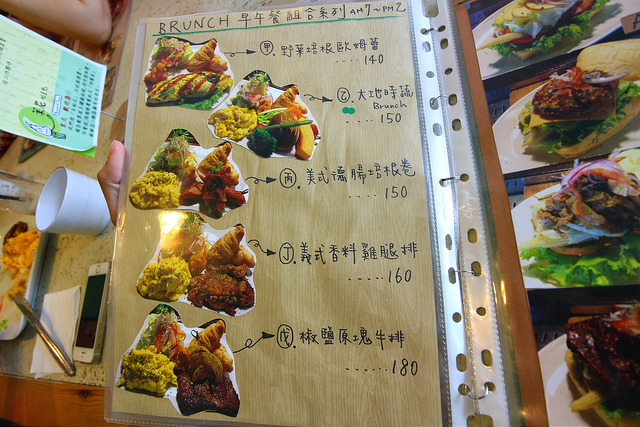 BRUNCH 早午餐組合系列 AM7~PM2
甲. 野菜培根歐姆蕾
.....140
乙. 大地時蔬
Brunch
.....150
丙. 美式德腸培根卷
.....150
丁. 義式香料雞腿排
.....160
戊. 椒鹽原塊牛排
.....180